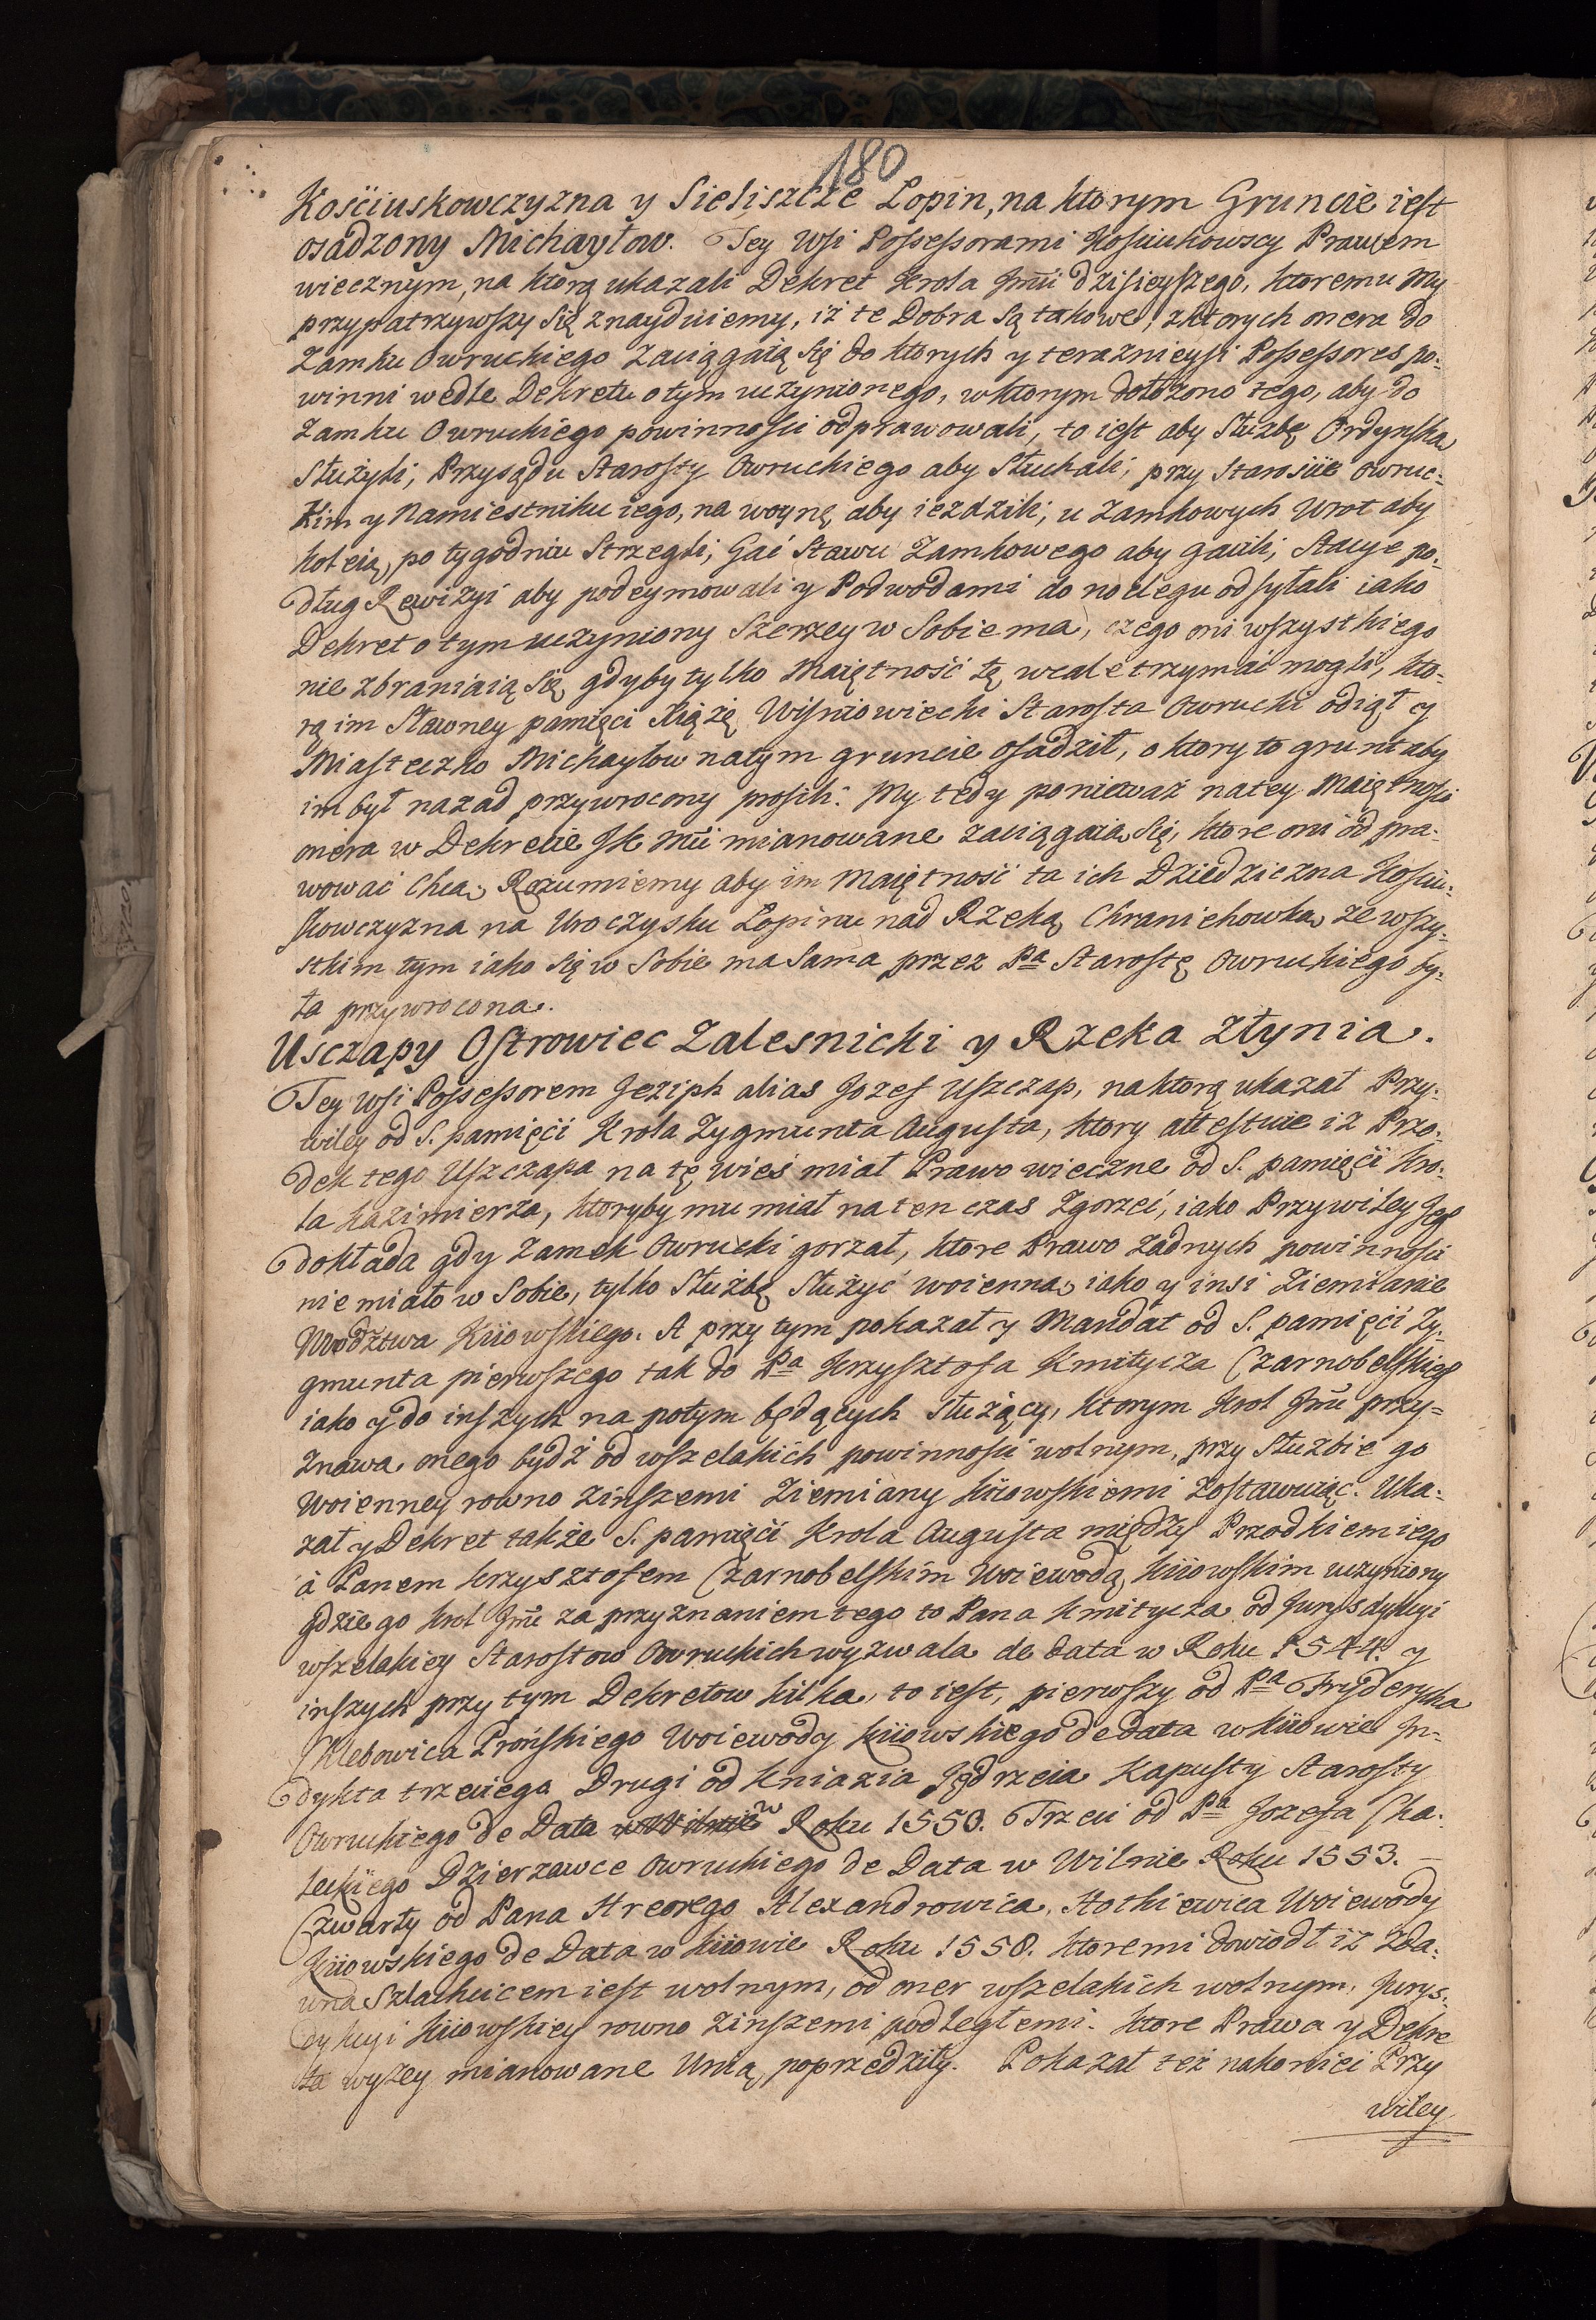 180
Kosciuskowczyzna y Sieliszcze Lopin, na ktorym Gruncie iest
osadzony Michayłow. Tey Wsi Possessorami Kosciukowscy Prawem
wiecznym, na ktorą ukazali Dekret Krola Jmći dzisieyszego, ktoremu My
przypatrzywszy się znayduiemy, iż te Dobra są takowe, z ktorych onera do
Zamku Owruckiego zaciągaią się do ktorych y teraznieysi Possessores po-
winni wedle Dekretu o tym uczynionego, w ktorym dołożono tego, aby do
Zamku Owruckiego powinnosci odprawowali, to iest aby Służbę Ordynską
Służyli; Przysądu Starosty Owruckiego aby Słuchali; przy Staroscie Owruc-
kim y Namiestniku iego, na woynę aby iezdzili; u Zamkowych Wrot aby
koleią po tygodniu Strzegli; Gać Stawu Zamkowego aby gacili; Stacye po-
dług Rewizyi aby podeymowali y Podwodami do noclegu odsyłali iako
Dekret o tym uczyniony Szerzey w Sobie ma, czego oni wszystkiego
nie zbraniaią się gdyby tylko Maiętność tę wcale trzymać mogli, kto-
rą im Sławney pamięci Xiążę Wisniowiecki Starosta Owrucki odiął y
Miasteczko Michayłow na tym gruncie osadził, o ktory to grunt aby
im był nazad przywrocony prosili. My tedy ponieważ na tey Maiętnosci
onera w Dekrecie JK Mći mianowane zaciągaią się, ktore oni odpra-
wować chcą, Rozumiemy aby im Maiętność ta ich Dziedziczna Kosciu-
skowczyzna na Uroczysku Lopinu nad Rzeką Chranichowką ze wszy-
stkim tym iako się w Sobie ma Sama przez Pa Starostę Owruckiego by-
ła przywrocona.
Usczapy Ostrowiec Zalesnicki y Rzeka Złynia.
Tey Wsi Possessorem Jeziph alias Jozef Uszczap, na ktorą ukazał Przy-
wiley od S. pamięći Krola Zygmunta Augusta, ktory attestuie iż Przo-
dek tego Uszczapa na tę wieś miał Prawo wieczne od S. pamięći Kro-
la Kazimierza, ktoryby mu miał na ten czas Zgorzeć, iako Przywiley Jego
dokłada gdy Zamek Owrucki gorzał, ktore Prawo żadnych powinnosci
nie miało w Sobie, tylko Służbę Służyć woienną iako y insi Ziemianie
Wodztwa Kiiowskiego. A przy tym pokazał y Mandat od S. pamięći Zy-
gmunta pierwszego tak do Pa Krzysztofa Kmitycza Czarnobelskiego
iako y do inszych na potym będących Służący, ktorym Krol Jmć przy=
znawa onego bydź od wszelakich powinnosci wolnym, przy Służbie go
Woienney rowno z inszemi Ziemiany Kiiowskiemi Zostawuiąc. Uka-
zał y Dekret także S. pamięći Krola Augusta między Przodkiem iego
à Panem Krzysztofem Czarnobelskim Woiewodą Kiiowskim uczyniony
gdzie go Krol Jmć za przyznaniem tego to Pana Kmitycza od Jurysdykcyi
wszelakiey Starostow Owruckich wyzwala de data w Roku 1544. y
inszych przy tym Dekretow kilka, to iest, pierwszy od Pa Fryderyka
Chlebowica Prońskiego Woiewody Kiiowskiego de data w Kiiowie In-
dykta trzeciego Drugi od Kniazia Jędrzeia Kapusty Starosty
Owruckiego de Data w Wilnie w Roku 1550. Trzeci od Pa Jozefa Cha-
leckiego Dzierzawce Owruckiego de Data w Wilnie Roku 1553.
Czwarty od Pana Hreorego Alexandrowica, Hotkiewica Woiewody
Kiiowskiego de Data w Kiiowie Roku 1558. ktoremi dowiodł iż zda-
wna Szlachcicem iest wolnym, od oner wszelakich wolnym, Jurys-
dykcyi Kiiowskiey rowno z inszemi podległemi. ktore Prawa y Dekre
ta wyżey mianowane Unią poprzedziły. Pokazał też nakoniec Przy
wiley